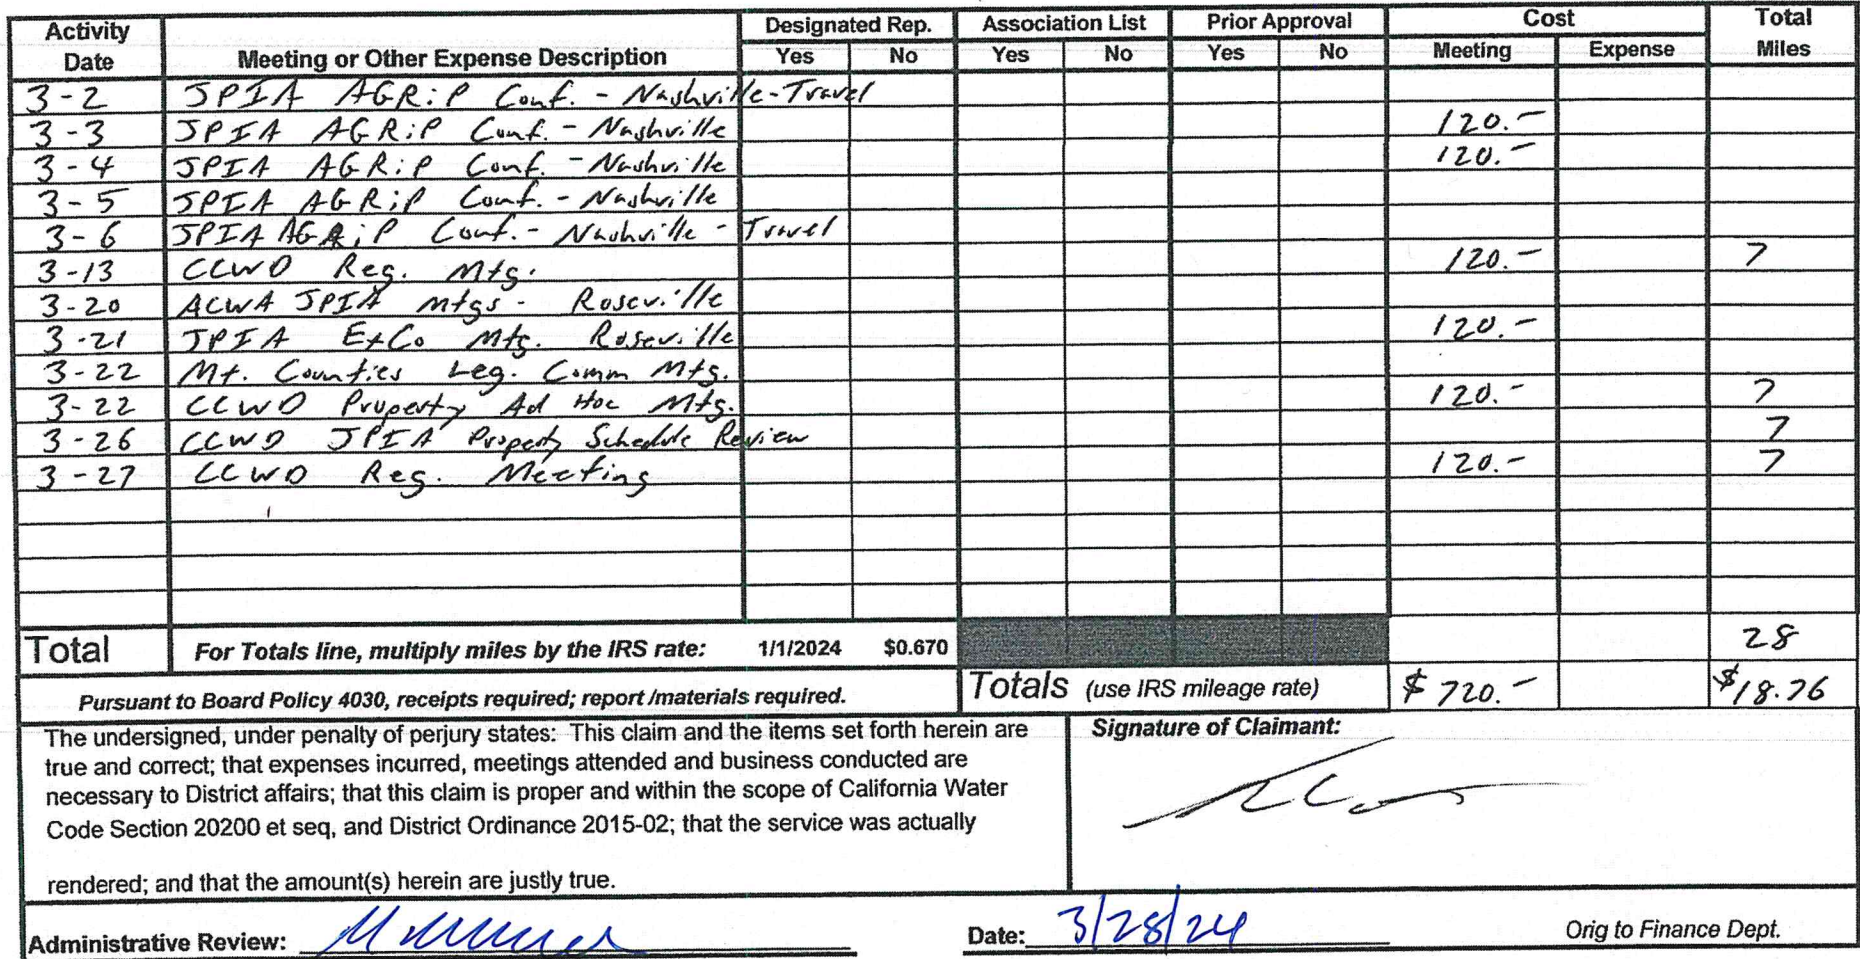 Activity Date Meeting or Other Expense Description Designated Rep. Yes No Association List Yes No Prior Approval Yes No Cost Meeting Expense Total Miles
3-2 JPIA AGRiP Conf. - Nashville-Travel
3-3 JPIA AGRiP Conf. - Nashville 120.-
3-4 JPIA AGRiP Conf. - Nashville 120.-
3-5 JPIA AGRiP Conf. - Nashville
3-6 JPIA AGRiP Conf. - Nashville - Travel
3-13 CCWD Reg. Mtg. 120.- 7
3-20 ACWA JPIA mtgs - Roseville
3-21 JPIA ExCo Mtg. Roseville 120.-
3-22 Mt. Counties Leg. Comm Mtg.
3-22 CCWD Property Ad Hoc Mtg. 120.- 7
3-26 CCWD JPIA Property Schedule Review 7
3-27 CCWD Reg. Meeting 120.- 7
Total For Totals line, multiply miles by the IRS rate: 1/1/2024 $0.670 28
Pursuant to Board Policy 4030, receipts required; report /materials required. Totals (use IRS mileage rate) $720.- $18.76
The undersigned, under penalty of perjury states: This claim and the items set forth herein are
true and correct; that expenses incurred, meetings attended and business conducted are
necessary to District affairs; that this claim is proper and within the scope of California Water
Code Section 20200 et seq, and District Ordinance 2015-02; that the service was actually
rendered; and that the amount(s) herein are justly true.
Signature of Claimant:
Administrative Review: Date: 3/28/24 Orig to Finance Dept.